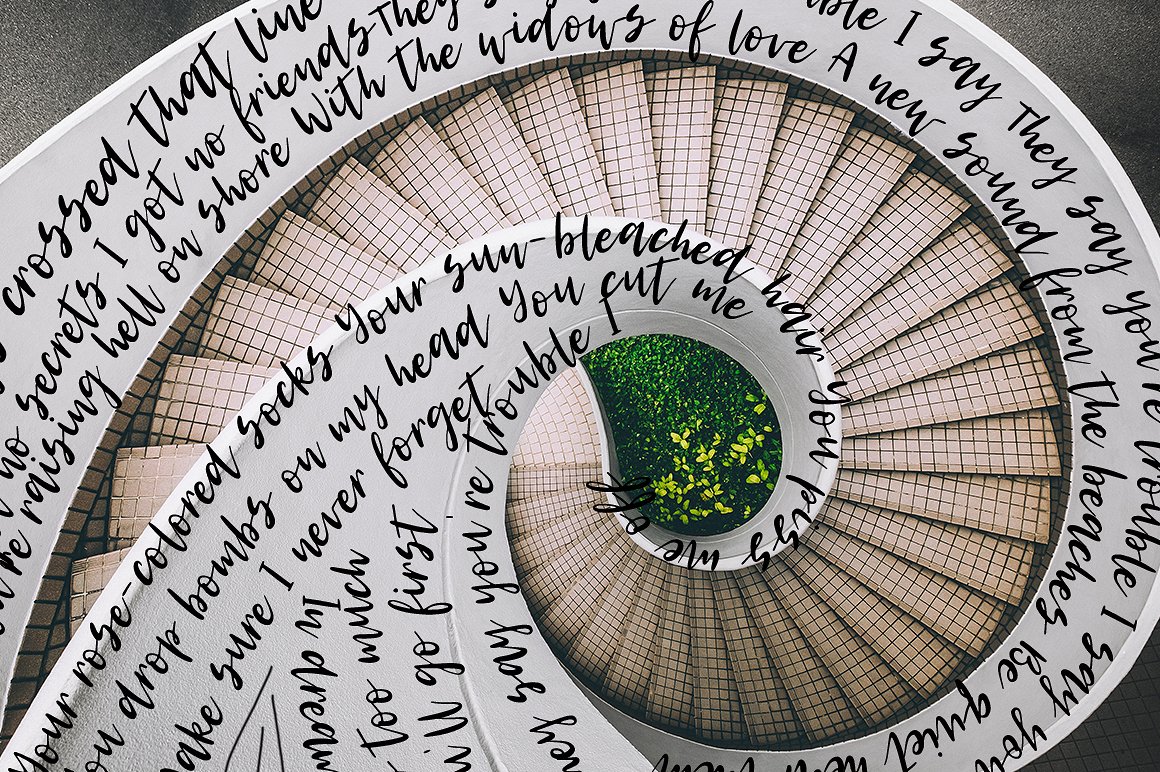 crossed that line
no secrets I got no friends They
raising hell on shore With the widows of love A new sound from the beaches Be quiet
I say They say you're trouble I say you
Your rose-colored socks Your sun-bleached hair You me off
drop bombs on my head You cut me
sure I never forget
In
too much
go first
say you're trouble I